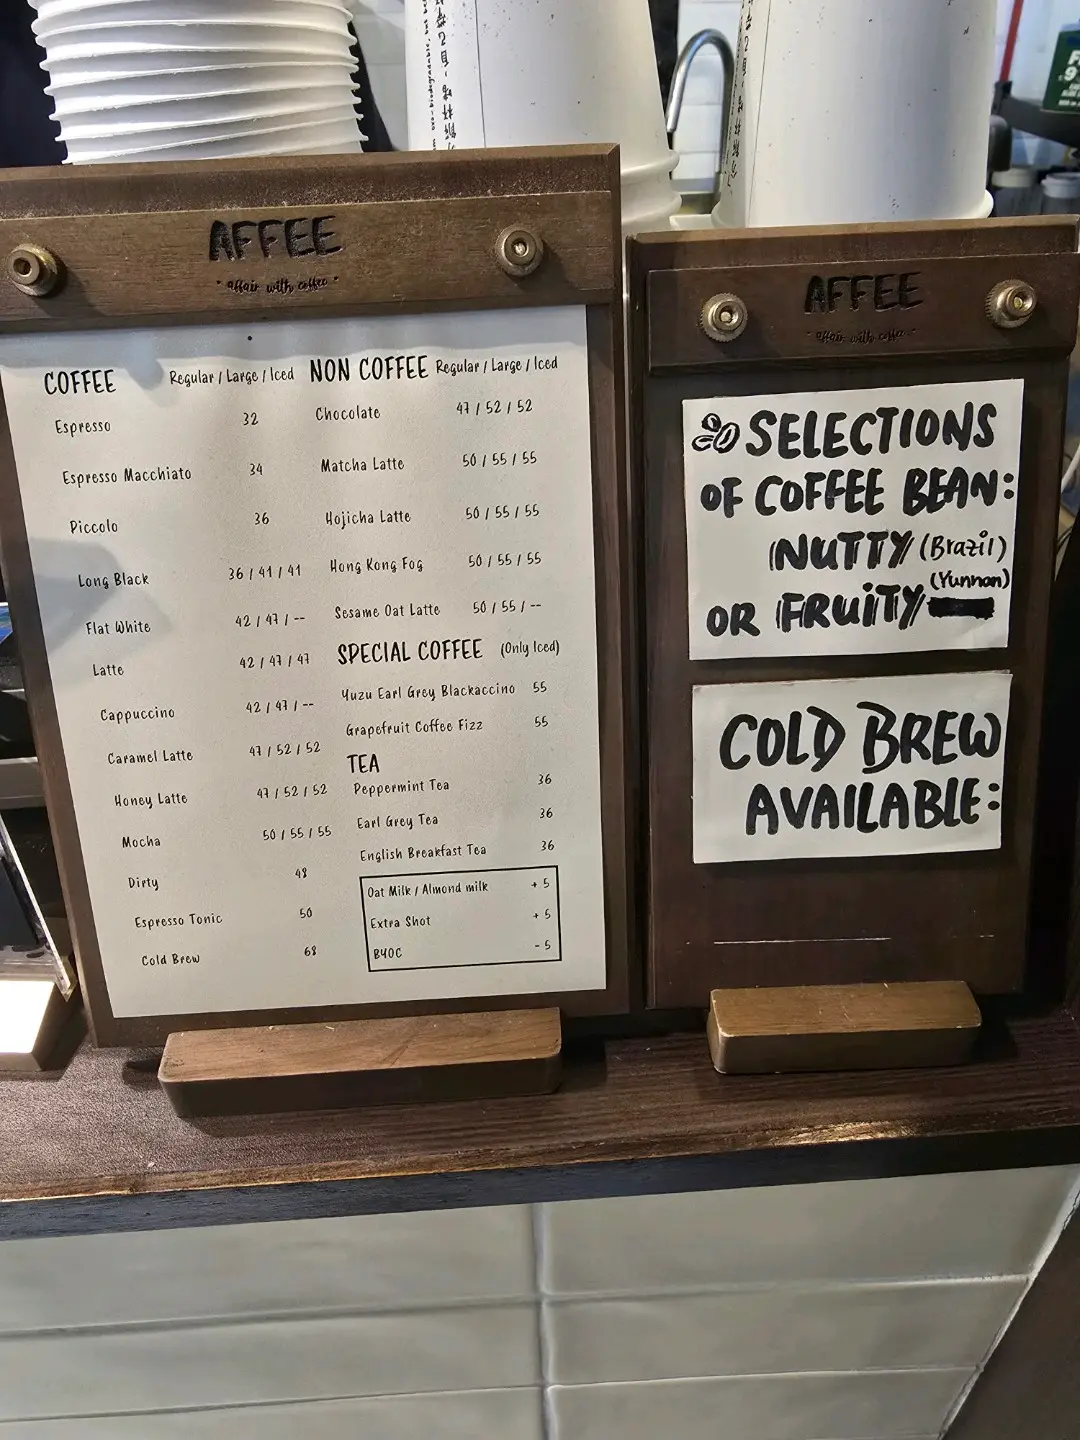 AFFEE
"affair with coffee"
COFFEE Regular / Large / Iced
Espresso 32
Espresso Macchiato 34
Piccolo 36
Long Black 36 / 41 / 41
Flat White 42 / 47 / --
Latte 42 / 47 / 47
Cappuccino 42 / 47 / --
Caramel Latte 47 / 52 / 52
Honey Latte 47 / 52 / 52
Mocha 50 / 55 / 55
Dirty 48
Espresso Tonic 50
Cold Brew 68
NON COFFEE Regular / Large / Iced
Chocolate 47 / 52 / 52
Matcha Latte 50 / 55 / 55
Hojicha Latte 50 / 55 / 55
Hong Kong Fog 50 / 55 / 55
Sesame Oat Latte 50 / 55 / --
SPECIAL COFFEE (Only Iced)
Yuzu Earl Grey Blackaccino 55
Grapefruit Coffee Fizz 55
TEA
Peppermint Tea 36
Earl Grey Tea 36
English Breakfast Tea 36
Oat Milk / Almond milk + 5
Extra Shot + 5
BYOC - 5
AFFEE
"affair with coffee"
SELECTIONS
OF COFFEE BEAN:
NUTTY (Brazil)
OR FRUITY (Yunnan)
COLD BREW
AVAILABLE: